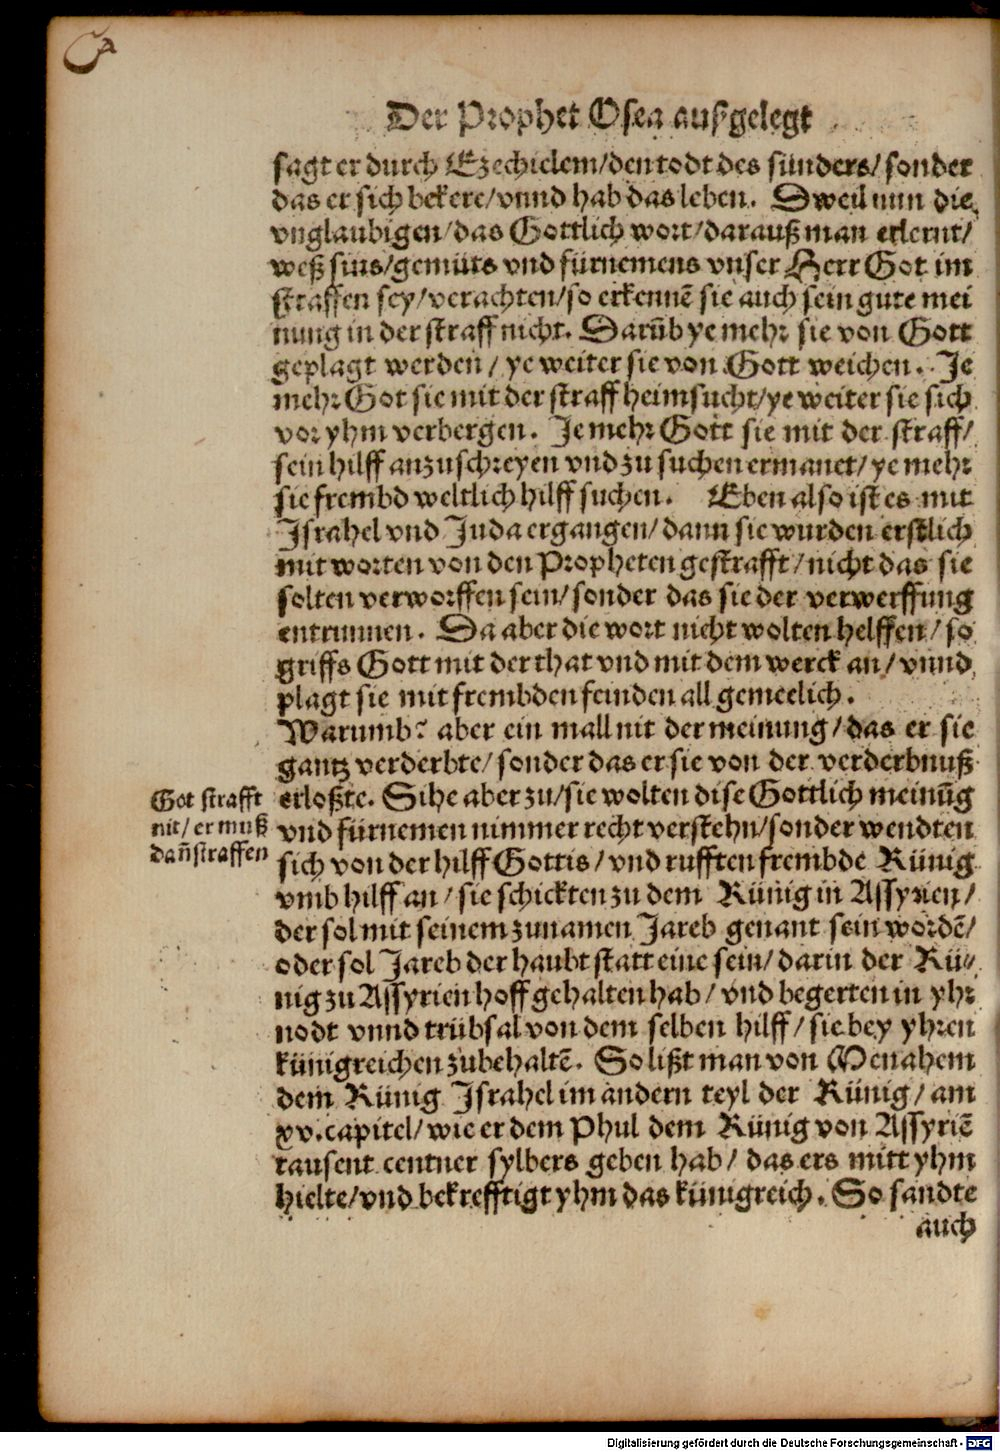 Der Prophet Osea außgelegt
sagt er durch Ezechielem/den todt des sünders/sonder
das er sich bekere/vnnd hab das leben. Dweil nun die
vnglaubigen/das Gottlich wort/darauß man erlernt/
weß sins/gemüts vnd fürnemens vnser Herr Got im
straffen sey/verachten/so erkennē sie auch sein gute mei
nung in der straff nicht. Darūb ye mehr sie von Gott
geplagt werden/ye weiter sie von Gott weichen. Je
mehr Got sie mit der straff heimsucht/ye weiter sie sich
vor yhm verbergen. Je mehr Gott sie mit der straff/
sein hilff anzuschreyen vnd zu suchen ermanet/ye mehr
sie frembd weltlich hilff suchen. Eben also ist es mit
Israhel vnd Juda ergangen/dann sie wurden erstlich
mit worten von den Propheten gestrafft/nicht das sie
solten verworffen sein/sonder das sie der verwerffung
entrunnen. Da aber die wort nicht wolten helffen/so
griffs Gott mit der that vnd mit dem werck an/vnnd
plagt sie mit frembden feinden all gemeelich.
Warumb? aber ein mall nit der meinung/das er sie
gantz verderbte/sonder das er sie von der verderbnuß
erloßte. Sihe aber zu/sie wolten dise Gottlich meinūg
vnd fürnemen nimmer recht verstehn/sonder wendten
sich von der hilff Gottis/vnd rufften frembde Künig
vmb hilff an/sie schickten zu dem Künig in Assyrien/
der sol mit seinem zunamen Jareb genant sein wordē/
oder sol Jareb der haubtstatt eine sein/darin der Kü⸗
nig zu Assyrien hoff gehalten hab/vnd begerten in yhr
nodt vnnd trübsal von dem selben hilff/sie bey yhren
künigreichen zubehaltē. So lißt man von Menahem
dem Künig Israhel im andern teyl der Künig/am
xv.capitel/wie er dem Phul dem Künig von Assyriē
tausent centner sylbers geben hab/das ers mitt yhm
hielte/vnd bekrefftigt yhm das künigreich. So sandte
auch
Got strafft
nit/er muß
dañ straffen
Digitalisierung gefördert durch die Deutsche Forschungsgemeinschaft - DFG